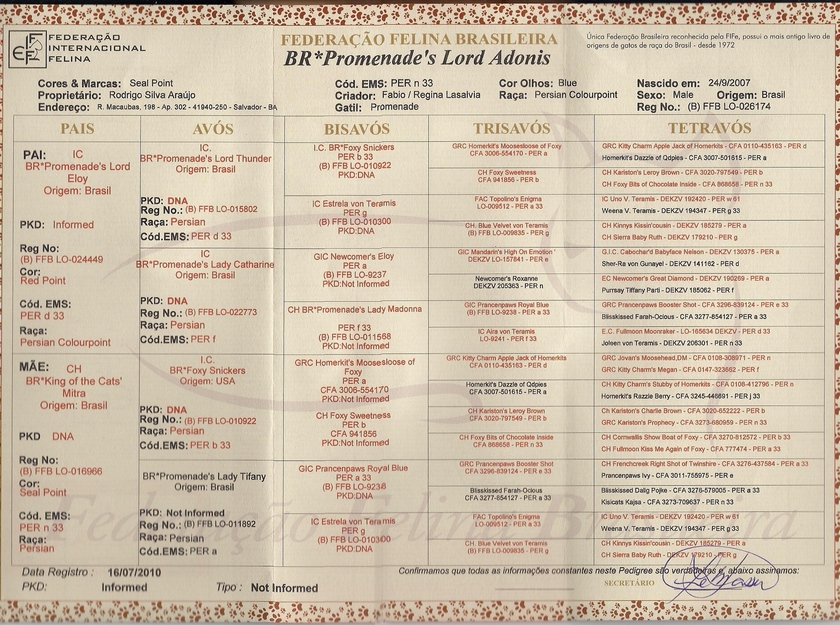 FEDERAÇÃO
INTERNACIONAL
FELINA
FEDERAÇÃO FELINA BRASILEIRA
BR*Promenade's Lord Adonis
Única Federação Brasileira reconhecida pela FIFe, possui o mais antigo livro de
origens de gatos de raça do Brasil - desde 1972
Cores & Marcas: Seal Point
Cód. EMS: PER n 33
Cor Olhos: Blue
Nascido em: 24/9/2007
Proprietário: Rodrigo Silva Araújo
Criador: Fabio / Regina Lasalvia
Raça: Persian Colourpoint
Sexo: Male Origem: Brasil
Endereço: R. Macaubas, 198 - Ap. 302 - 41940-250 - Salvador - BA
Gatil: Promenade
Reg No.: (B) FFB LO-026174
PAIS
PAI: IC
BR*Promenade's Lord
Eloy
Origem: Brasil
PKD: Informed
Reg No:
(B) FFB LO-024449
Cor:
Red Point
Cód. EMS:
PER d 33
Raça:
Persian Colourpoint
MÃE: CH
BR*King of the Cats'
Mitra
Origem: Brasil
PKD DNA
Reg No:
(B) FFB LO-016966
Cor:
Seal Point
Cód. EMS:
PER n 33
Raça:
Persian
AVÓS
IC.
BR*Promenade's Lord Thunder
Origem: Brasil
PKD: DNA
Reg No.: (B) FFB LO-015802
Raça: Persian
Cód.EMS: PER d 33
IC
BR*Promenade's Lady Catharine
Origem: Brasil
PKD: DNA
Reg No.: (B) FFB LO-022773
Raça: Persian
Cód.EMS: PER f
I.C.
BR*Foxy Snickers
Origem: USA
PKD: DNA
Reg No.: (B) FFB LO-010922
Raça: Persian
Cód.EMS: PER b 33
BR*Promenade's Lady Tifany
Origem: Brasil
PKD: Not Informed
Reg No.: (B) FFB LO-011892
Raça: Persian
Cód.EMS: PER a
BISAVÓS
I.C. BR*Foxy Snickers
PER b 33
(B) FFB LO-010922
PKD:DNA
IC Estrela von Teramis
PER g
(B) FFB LO-010300
PKD:DNA
GIC Newcomer's Eloy
PER a
(B) FFB LO-9237
PKD:Not Informed
CH BR*Promenade's Lady Madonna
PER f 33
(B) FFB LO-011568
PKD:Not Informed
GRC Homerkit's Mooseloose of
Foxy
PER a
CFA 3006-554170
PKD:Not Informed
CH Foxy Sweetness
PER b
CFA 941856
PKD:Not Informed
GIC Prancenpaws Royal Blue
PER a 33
(B) FFB LO-9238
PKD:DNA
IC Estrela von Teramis
PER g
(B) FFB LO-010300
PKD:DNA
TRISAVÓS
GRC Homerkit's Mooselooses of Foxy
CFA 3006-554170 - PER a
CH Foxy Sweetness
CFA 941856 - PER b
FAC Topolino's Enigma
LO-009512 - PER a 33
CH. Blue Velvet von Teramis
(B) FFB LO-009835 - PER g
GIC Mandarin's High On Emotion'
DEKZV LO-157841 - PER e
Newcomer's Roxanne
DEKZV 205363 - PER n
GIC Prancenpaws Royal Blue
(B) FFB LO-9238 - PER a 33
IC Aira von Teramis
LO-9241 - PER f 33
GRC Kitty Charm Apple Jack of Homerkits
CFA 0110-435163 - PER d
Homerkit's Dazzle of Qdpies
CFA 3007-501615 - PER a
CH Kariston's Leroy Brown
CFA 3020-797549 - PER b
CH Foxy Bits of Chocolate Inside
CFA 868658 - PER n 33
GRC Prancenpaws Booster Shot
CFA 3296-839124 - PER e 33
Blisskissed Farah-Ocious
CFA 3277-854127 - PER a 33
FAC Topolino's Enigma
LO-009512 - PER a 33
CH. Blue Velvet von Teramis
(B) FFB LO-009835 - PER g
TETRAVÓS
GRC Kitty Charm Apple Jack of Homerkits - CFA 0110-435163 - PER d
Homerkit's Dazzle of Qdpies - CFA 3007-501615 - PER a
CH Kariston's Leroy Brown - CFA 3020-797549 - PER b
CH Foxy Bits of Chocolate Inside - CFA 868658 - PER n 33
IC Uno V. Teramis - DEKZV 192420 - PER w 61
Weena V. Teramis - DEKZV 194347 - PER g 33
CH Kinnys Kissin'cousin - DEKZV 185279 - PER a
CH Sierra Baby Ruth - DEKZV 179210 - PER g
G.I.C. Cabochard'Babyface Nelson - DEKZV 130375 - PER a
Sher-Ra von Gunayel - DEKZV 141162 - PER d
EC Newcomer's Great Diamond - DEKZV 190269 - PER a
Purrsay Tiffany Parti - DEKZV 185062 - PER f
GRC Prancenpaws Booster Shot - CFA 3296-839124 - PER e 33
Blisskissed Farah-Ocious - CFA 3277-854127 - PER a 33
E.C. Fullmoon Moonraker - LO-165634 DEKZV - PER d 33
Joleen von Teramis - DEKZV 206301 - PER n 33
GRC Jovan's Moosehead,DM - CFA 0108-308971 - PER n
GRC Kitty Charm's Megan - CFA 0147-323662 - PER f
CH Kitty Charm's Stubby of Homerkits - CFA 0108-412796 - PER n
Homerkit's Razzle Berry - CFA 3245-446891 - PER j 33
Ch Kariston's Charlie Brown - CFA 3020-652222 - PER b
GRC Kariston's Prophecy - CFA 3273-680959 - PER n 33
CH Cornwallis Show Boat of Foxy - CFA 3270-812572 - PER b 33
CH Fullmoon Kiss Me Again of Foxy - CFA 777474 - PER n 33
CH Frenchcreek Right Shot of Twinshire - CFA 3276-437584 - PER a 33
Prancenpaws Ivy - CFA 3011-755975 - PER e
Blisskissed Dalig Pojke - CFA 3276-579005 - PER a 33
Kisicats Kajsa - CFA 3273-709637 - PER n 33
IC Uno V. Teramis - DEKZV 192420 - PER w 61
Weena V. Teramis - DEKZV 194347 - PER g 33
CH Kinnys Kissin'cousin - DEKZV 185279 - PER a
CH Sierra Baby Ruth - DEKZV 179210 - PER g
Federação Felina Brasileira
Data Registro : 16/07/2010
Confirmamos que todas as informações constantes neste Pedigree são verdadeiras e, abaixo assinamos:
PKD: Informed Tipo : Not Informed
SECRETÁRIO